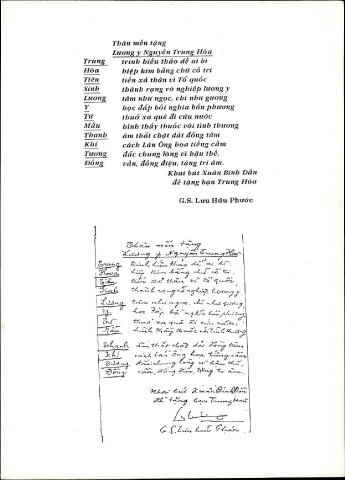 Thân mến tặng
Lương y Nguyễn Trung Hòa
Trung trinh biếu thảo dễ ai bì
Hòa hiệp kim bằng chữ cố tri
Tiên tiến xả thân vì Tổ quốc
Sinh thành rạng rỡ nghiệp lương y
Lương tâm như ngọc, chí như gương
Y học đắp bồi nghĩa bốn phương
Tứ thuở xa quê đi cứu nước
Mẫu bình thầy thuốc với tình thương
Thanh âm thất chật dát đồng tâm
Khí cách Lãn Ông họa tiếng cầm
Tương đắc chung lòng vì hậu thế,
Đồng văn, đồng điệu, tặng tri âm.
Khai bút Xuân Bính Dần
đề tặng bạn Trung Hòa
G.S. Lưu Hữu Phước
Thân mến tặng
Lương y Nguyễn Trung Hòa
Trung trinh hiếu thảo dễ ai bì
Hòa hiệp kim bằng chữ cố tri
Tiên tiến xả thân vì Tổ quốc
Sinh thành rạng rỡ nghiệp lương y
Lương tâm như ngọc, chí như gương
Y học đắp bồi nghĩa bốn phương
Từ thuở xa quê đi cứu nước,
Mẫu bình thầy thuốc với tình thương
Thanh âm thất đồng tâm
Khí cách Lãn Ông họa tiếng cầm
Tương đắc chung lòng vì hậu thế,
Đồng văn, đồng điệu, tặng tri âm.
Khai bút Xuân Bính Dần
đề tặng bạn Trung Hòa
G.S. Lưu Hữu Phước